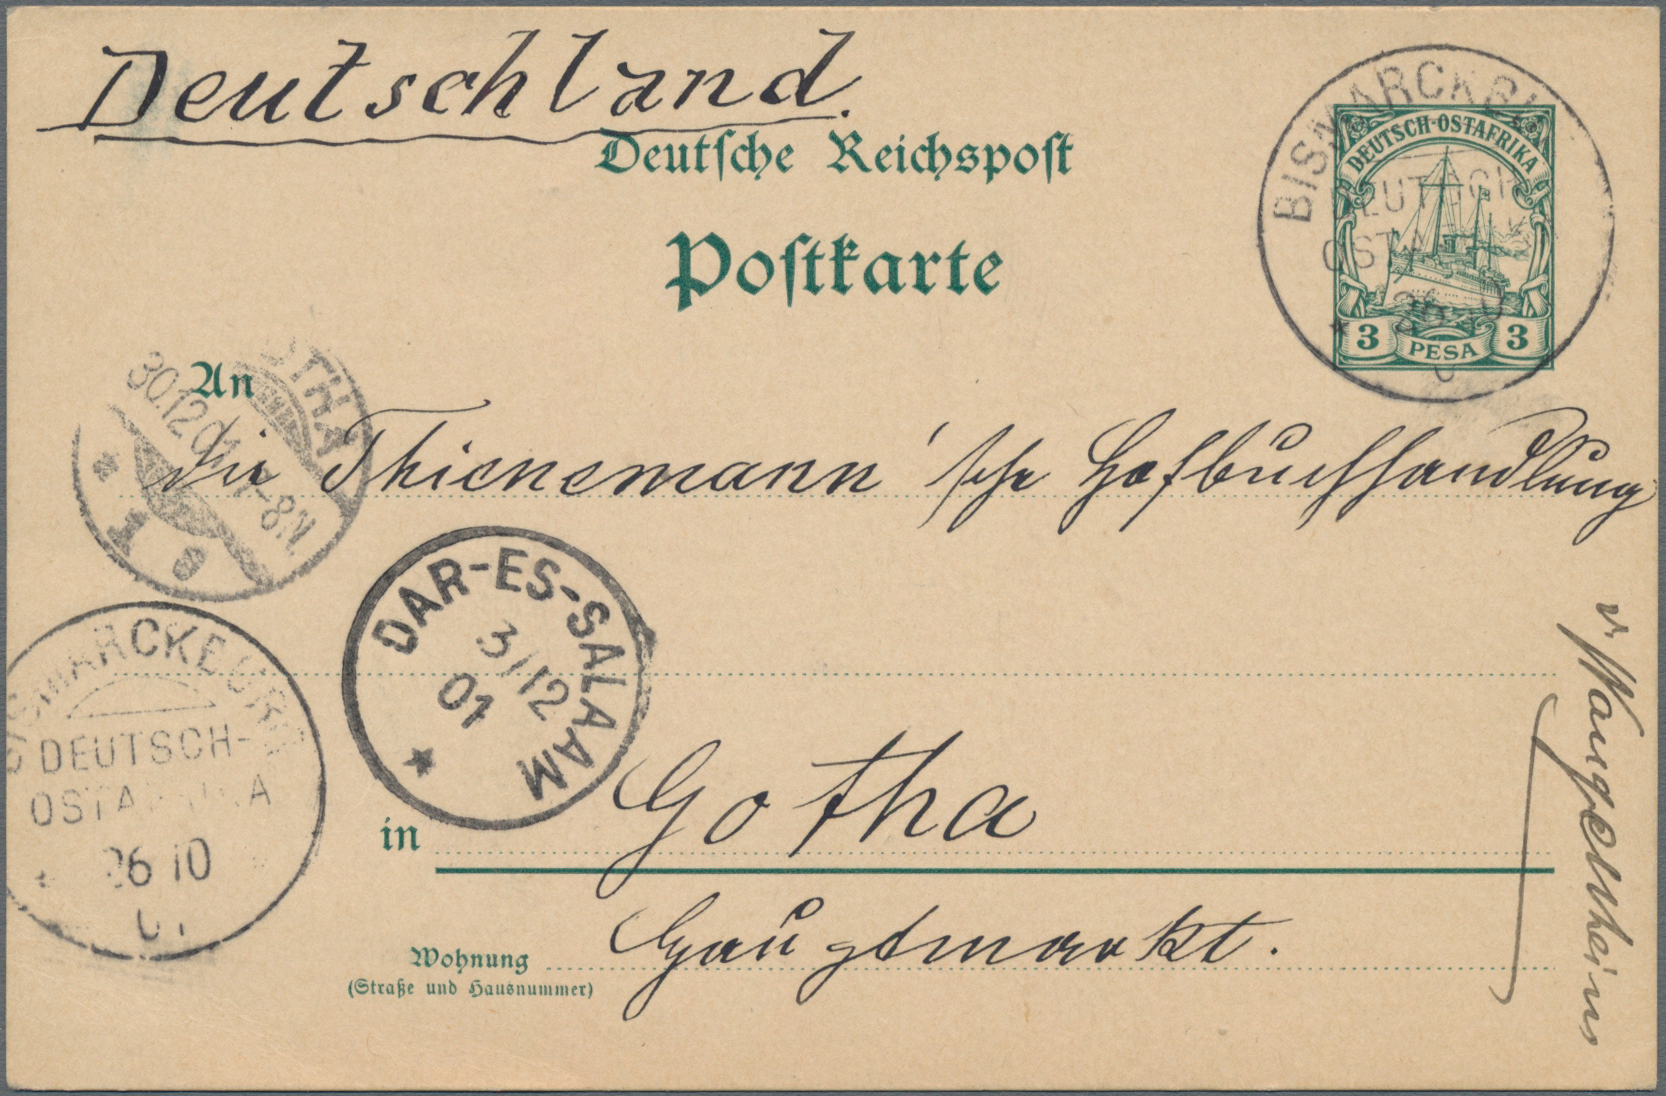 Deutschland.
Deutsche Reichspost
Postkarte
BISMARCKBU
DEUTSCH
OSTA
26 10
DEUTSCH-OSTAFRIKA
3 PESA 3
An
GOTHA
30.12.01. 7-8N
* 1 e
die Thienemann'sche Hofbuchhandlung
DAR-ES-SALAAM
3/12
01
BISMARCKBURG
DEUTSCH-
OSTAFRIKA
26 10
01
in Gotha
Wohnung
(Straße und Hausnummer)
Hauptmarkt.